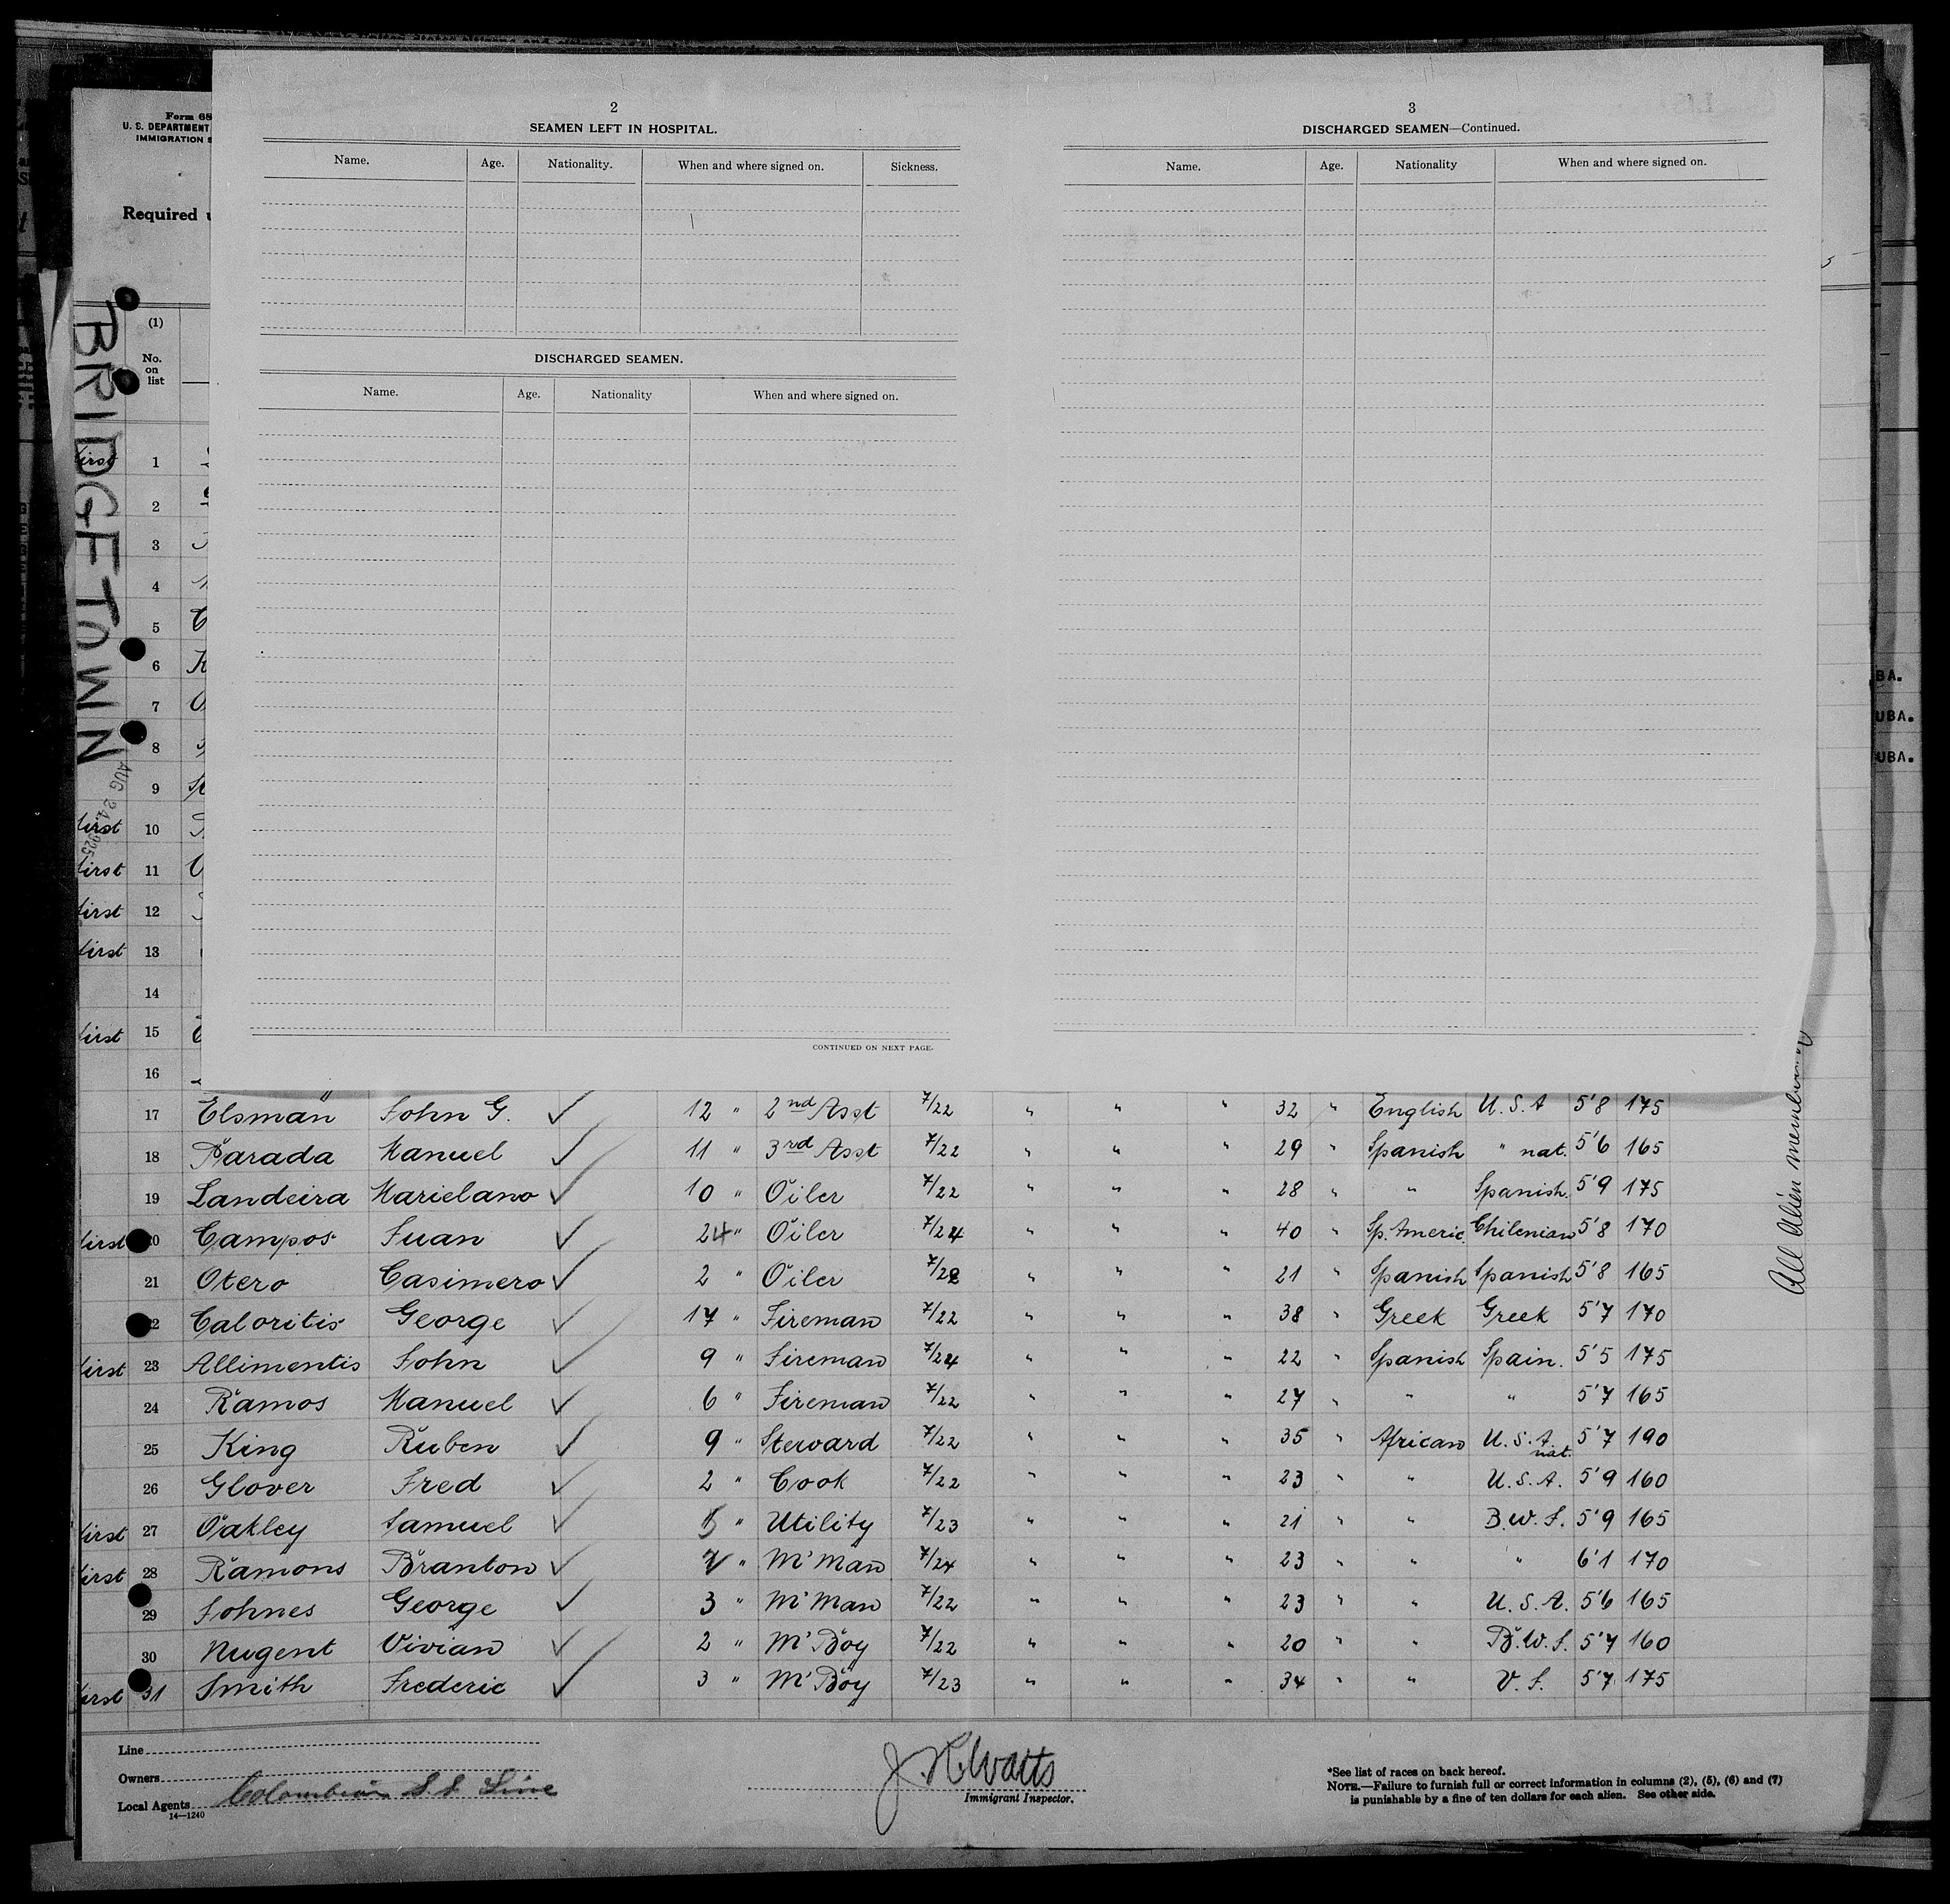 Form 68
U. S. DEPARTMENT
IMMIGRATION S
Required u
BRIDGETOWN
AUG 24 1925
(1)
No.
on
list
2
SEAMEN LEFT IN HOSPITAL.
Name. Age. Nationality. When and where signed on. Sickness.
DISCHARGED SEAMEN.
Name. Age. Nationality When and where signed on.
CONTINUED ON NEXT PAGE.
3
DISCHARGED SEAMEN—Continued.
Name. Age. Nationality When and where signed on.
BA.
UBA.
UBA.
first 1
2
3
4
5
6
7
8
9
first 10
first 11
first 12
first 13
14
first 15
16
17 Elsman John G. ✓ 12 " 2nd Asst 7/22 " " " 32 " English U.S.A 5'8 175
18 Parada Manuel ✓ 11 " 3rd Asst 7/22 " " " 29 " Spanish " nat. 5'6 165
19 Landeira Marielano ✓ 10 " Oiler 7/22 " " " 28 " " Spanish. 5'9 175
first 20 Campos Juan ✓ 24 " Oiler 7/24 " " " 40 " Sp. Americ. Chilenian 5'8 170
21 Otero Casimero ✓ 2 " Oiler 7/22 " " " 21 " Spanish Spanish 5'8 165
22 Caloritis George ✓ 17 " Fireman 7/22 " " " 38 " Greek Greek 5'7 170
first 23 Allimentis John ✓ 9 " Fireman 7/24 " " " 22 " Spanish Spain. 5'5 175
24 Ramos Manuel ✓ 6 " Fireman 7/22 " " " 27 " " " 5'7 165
25 King Ruben ✓ 9 " Steward 7/22 " " " 35 " African U.S.A. nat. 5'7 190
26 Glover Fred ✓ 2 " Cook 7/22 " " " 23 " " U.S.A. 5'9 160
first 27 Oakley Samuel ✓ " Utility 7/23 " " " 21 " " B.W.I. 5'9 165
first 28 Ramons Branton ✓ " M'Man 7/24 " " " 23 " " " 6'1 170
29 Johnes George ✓ 3 " M'Man 7/22 " " " 23 " " U.S.A. 5'6 165
30 Nugent Vivian ✓ 2 " M'Boy 7/22 " " " 20 " " B.W.I. 5'7 160
first 31 Smith Frederic ✓ 3 " M'Boy 7/23 " " " 34 " " V.I. 5'7 175
All Alien
Line
Owners
Local Agents Colombian S.S. Line
14—1240
J. H. Watts
Immigrant Inspector.
*See list of races on back hereof.
NOTE.—Failure to furnish full or correct information in columns (2), (5), (6) and (7)
is punishable by a fine of ten dollars for each alien. See other side.